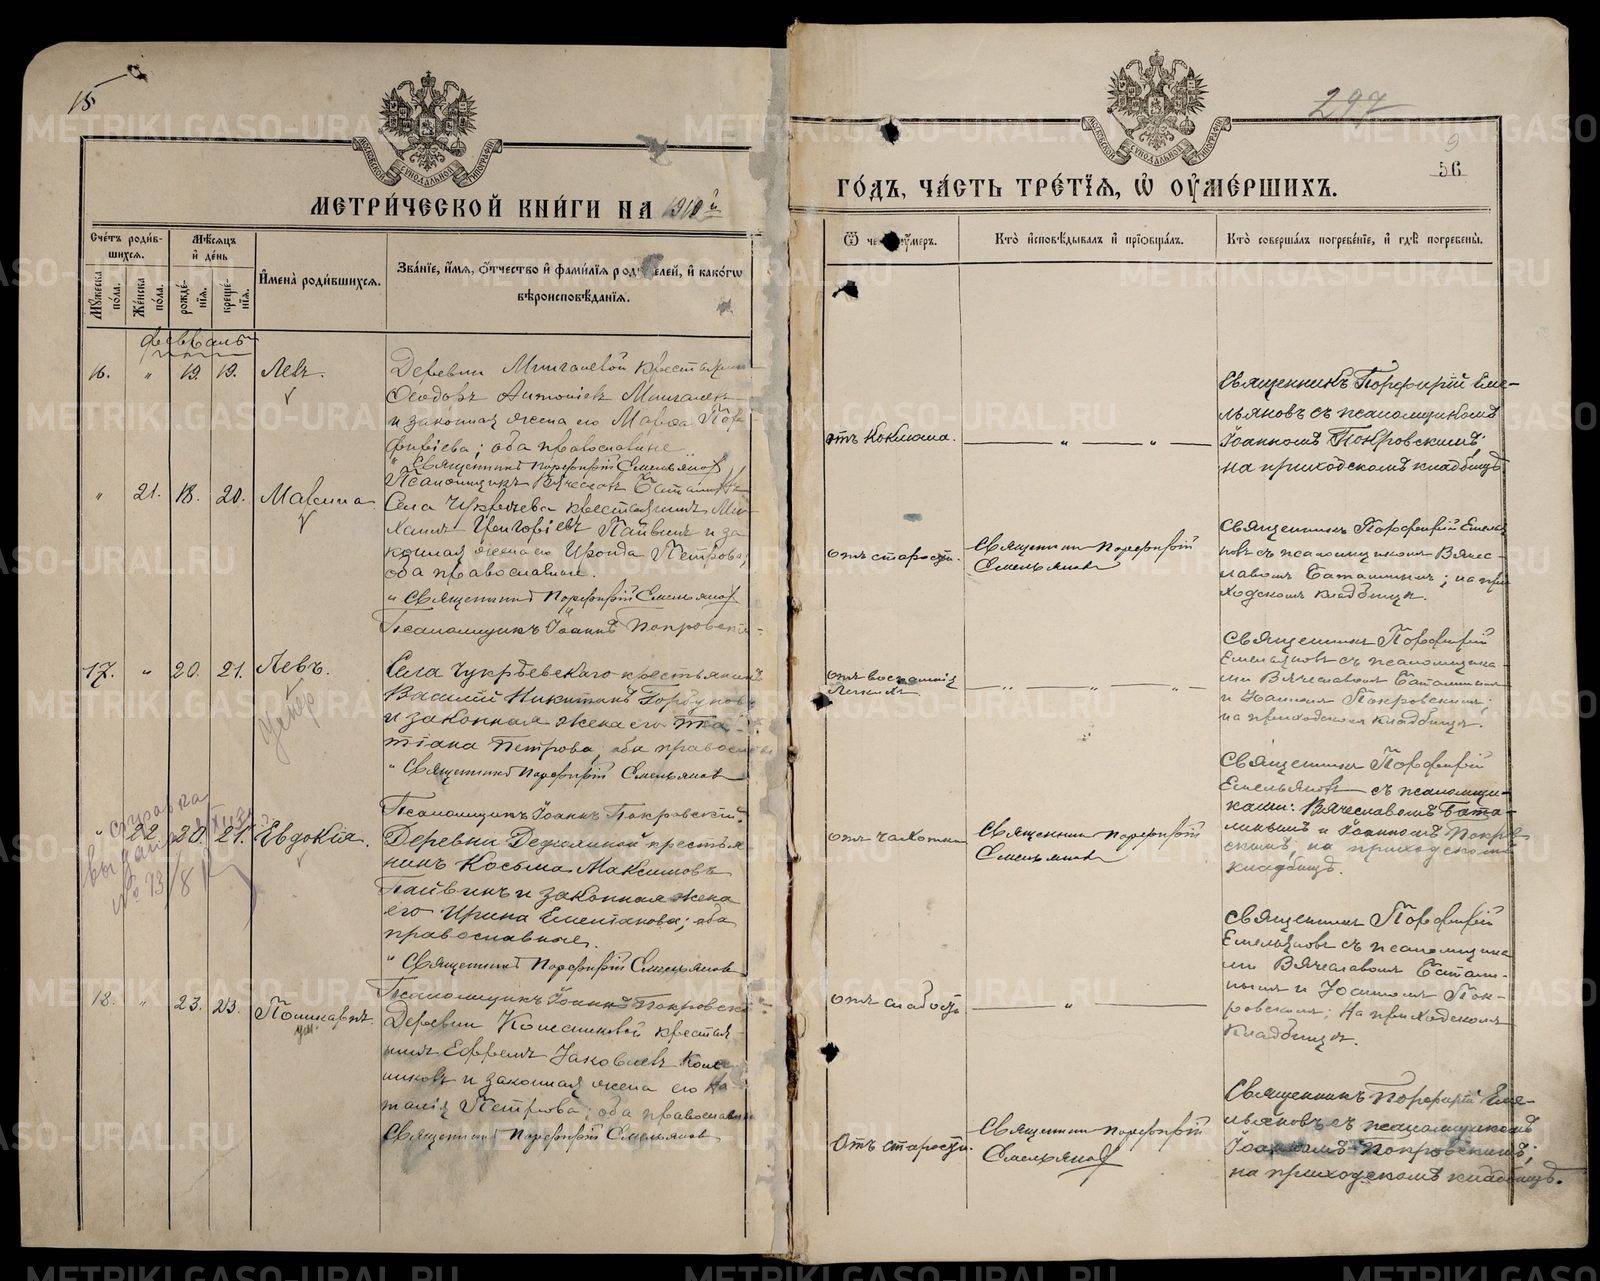 15
МЕТРИ́ЧЕСКОЙ КНИ́ГИ НА 1910 й
Сче́тъ роди́в-
шихся.
Мѣ́сяцъ
и҆ де́нь
Му́жеска
по́ла.
Же́нска
по́ла.
рожде́-
нїѧ.
креще́-
нїѧ.
И҆мена̀ роди́вшихсѧ.
Зва́нїе, и҆́мѧ, ѻ҆́тчество и҆ фами́лїѧ роди́телей, и҆ како́гѡ
вѣроисповѣ́данїѧ.
Февраль
16. " 19. 19. Левъ.
Деревни Мингалевой крестьянинъ
Ѳеодоръ Антоніевъ Мингалевъ
и законная жена его Марѳа Пор-
фиріева; оба православные
" Священникъ Порфирій Емельяновъ
Псаломщикъ Вячеславъ
" 21. 18. 20. Маѵсима
Села Чупрѣева крестьянинъ Ми-
хаилъ Григоріевъ Пайвинъ и за-
конная жена его Ироида Петрова;
оба православные.
" Священникъ Порфирій Емельяновъ
Псаломщикъ Іоаннъ Покровскій
17. " 20. 21. Левъ.
умеръ
Села Чупрѣевскаго крестьянинъ
Василій Никитинъ Горбуновъ
и законная жена его Та-
тіана Петрова, оба православные
" Священникъ Порфирій Емельяновъ
Псаломщикъ Іоаннъ Покровскій
" 22. 20. 21. Евдокія.
справка
выдана
№ 93/8
Деревни крестья-
нинъ Косьма Максимовъ
Пайвинъ и законная жена
его Ирина Емеліанова; оба
православные.
" Священникъ Порфирій Емельяновъ
Псаломщикъ Іоаннъ Покровскій
18. " 23. 23. Поликарпъ.
ум.
Деревни Колесниковой крестья-
нинъ Ефремъ Іаковлевъ Колес-
никовъ и законная жена его На-
талія Петрова; оба православные
Священникъ Порфирій Емельяновъ
297
9
56
ГО́ДЪ, ЧА́СТЬ ТРЕ́ТЇѦ, Ѡ҆ ОУ҆МЕ́РШИХЪ.
Ѿ чегѡ̀ оу҆́меръ.
Кто̀ и҆сповѣ́дывалъ и҆ прїѡбща́лъ.
Кто̀ соверша́лъ погребе́нїе, и҆ гдѣ̀ погребены̀.
отъ коклюша.
— " — " —
Священникъ Порфирій Еме-
льяновъ съ псаломщикомъ
Іоанномъ Покровскимъ
на приходскомъ кладбищѣ
отъ старости.
Священникъ Порфирій
Емельяновъ
Священникъ Порфирій Емелья-
новъ съ псаломщикомъ Вячес-
лавомъ Баталинымъ; на при-
ходскомъ кладбищѣ.
отъ воспаленія
легкихъ
— " — " — " —
Священникъ Порфирій
Емельяновъ съ псаломщика-
ми Вячеславомъ Баталинымъ
и Іоанномъ Покровскимъ;
на приходскомъ кладбищѣ.
отъ чахотки
Священникъ Порфирій
Емельяновъ
Священникъ Порфирій
Емельяновъ съ псаломщи-
ками: Вячеславомъ Бата-
линымъ и Іоанномъ Покров-
скимъ, на приходскомъ
кладбищѣ.
отъ слабости
— " —
Священникъ Порфирій
Емельяновъ съ псаломщика-
ми Вячеславомъ Батали-
нымъ и Іоанномъ Пок-
ровскимъ; на приходскомъ
кладбищѣ.
Отъ старости.
Священникъ Порфирій
Емельяновъ
Священникъ Порфирій Еме-
льяновъ съ псаломщикомъ
Іоанномъ Покровскимъ;
на приходскомъ кладбищѣ.
METRIKI.GASO-URAL.RU